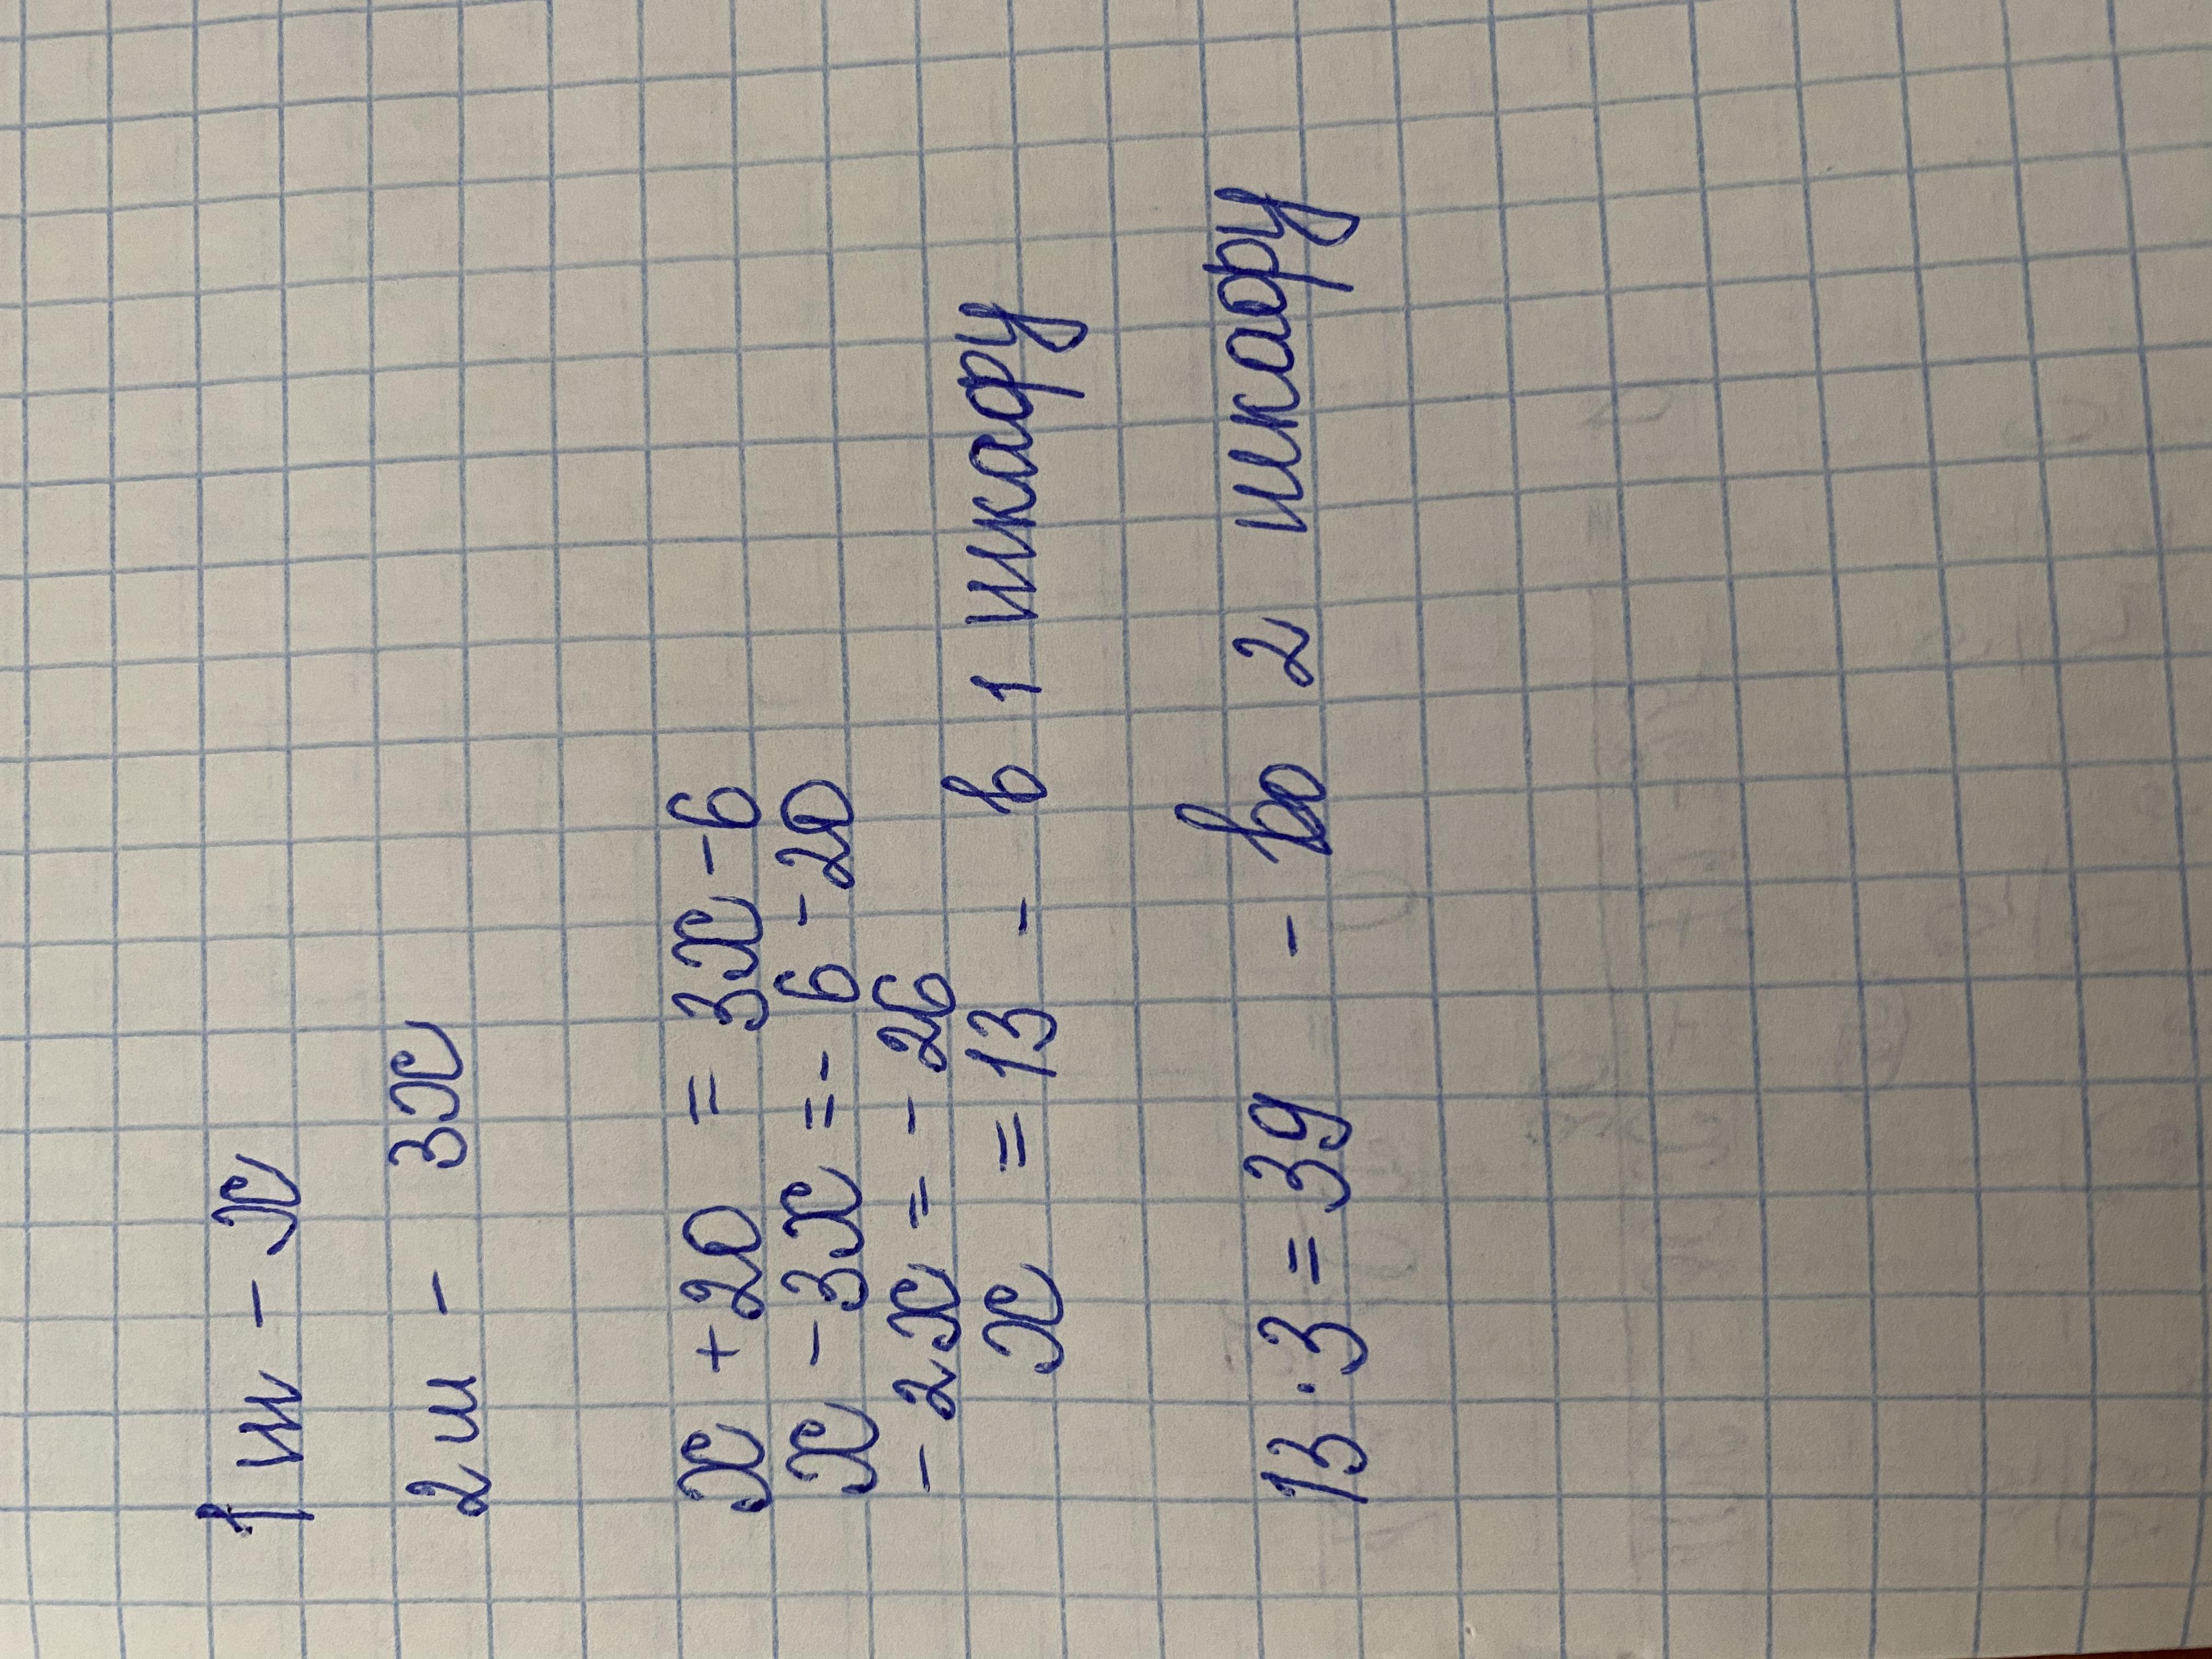 1 ш - x
2 ш - 3x
x + 20 = 3x - 6
x - 3x = - 6 - 20
- 2x = - 26
x = 13 - в 1 шкафу
13 · 3 = 39 - во 2 шкафу